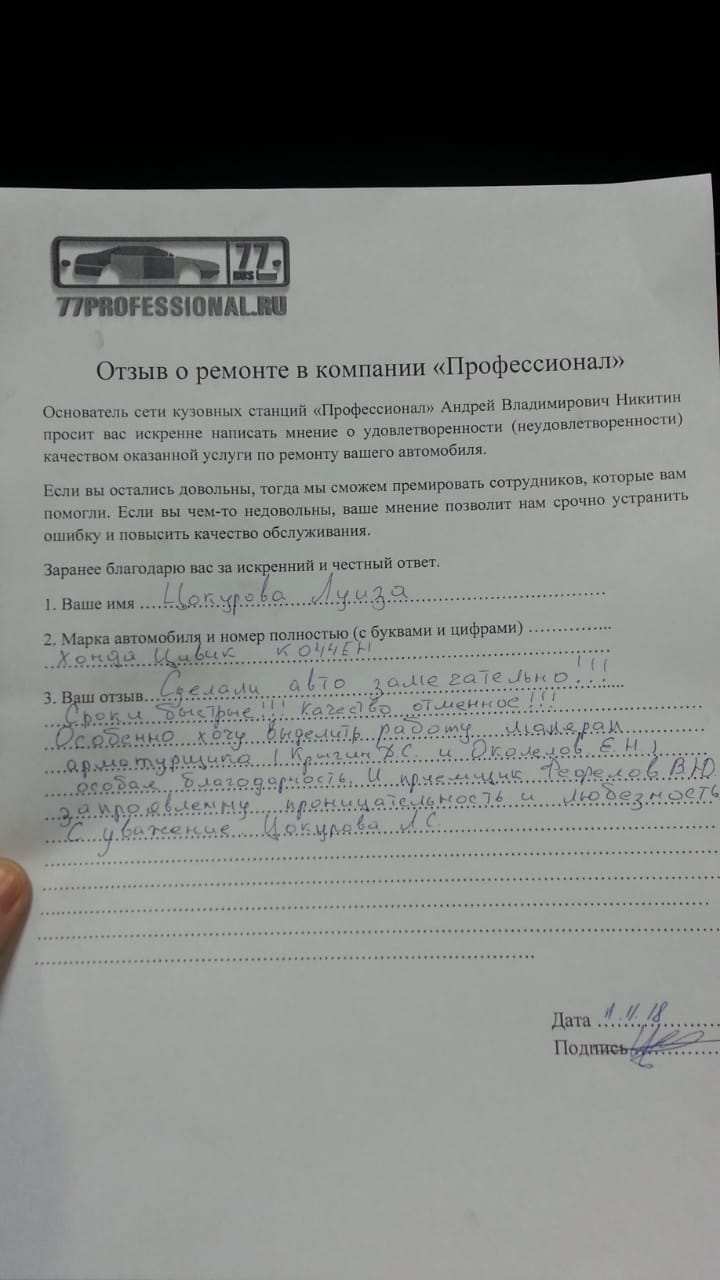 77
RUS
77PROFESSIONAL.RU
Отзыв о ремонте в компании «Профессионал»
Основатель сети кузовных станций «Профессионал» Андрей Владимирович Никитин
просит вас искренне написать мнение о удовлетворенности (неудовлетворенности)
качеством оказанной услуги по ремонту вашего автомобиля.
Если вы остались довольны, тогда мы сможем премировать сотрудников, которые вам
помогли. Если вы чем-то недовольны, ваше мнение позволит нам срочно устранить
ошибку и повысить качество обслуживания.
Заранее благодарю вас за искренний и честный ответ.
1. Ваше имя Цокурова Луиза
2. Марка автомобиля и номер полностью (с буквами и цифрами)
Хонда Цивик К044ЕН
3. Ваш отзыв Сделали авто замечательно!!!
Сроки быстрые!!! Качество отменное!!!
Особенно хочу выделить работу
арматурщика (Кричин и Околелов Е.Н.)
особая благодарность. И приемщик Фефелов В.Ю
за проявленну проницательность и любезность
С уважение Цокурова Л С
Дата 1.11.18
Подпись